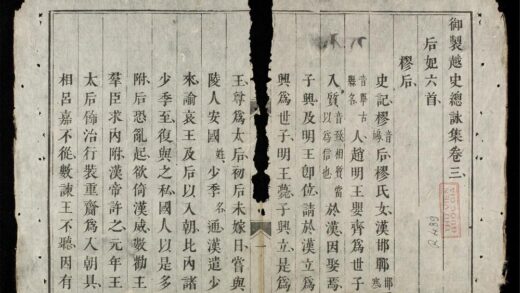 御製越史總詠集卷三
后妃六首
樛后
史記樛音鳩后樛氏女漢邯鄲邯音寒
縣名人趙明王嬰齊爲世子
入質音致相質當以爲信也於漢因娶焉
子興及明王卽位請於漢立
興爲世子明王薨子興立是爲
王尊爲太后初后未嫁日嘗與
陵人安國姓少季名通漢遣少
來諭哀王及后以入朝比内諸
少季至復與之私國人以是多
附后恐亂起欲倚漢威數勸王
羣臣求内附漢帝許之元年王
太后飾治行裝重齎爲入朝具
相呂嘉不從數諫王不聽因有
R.489